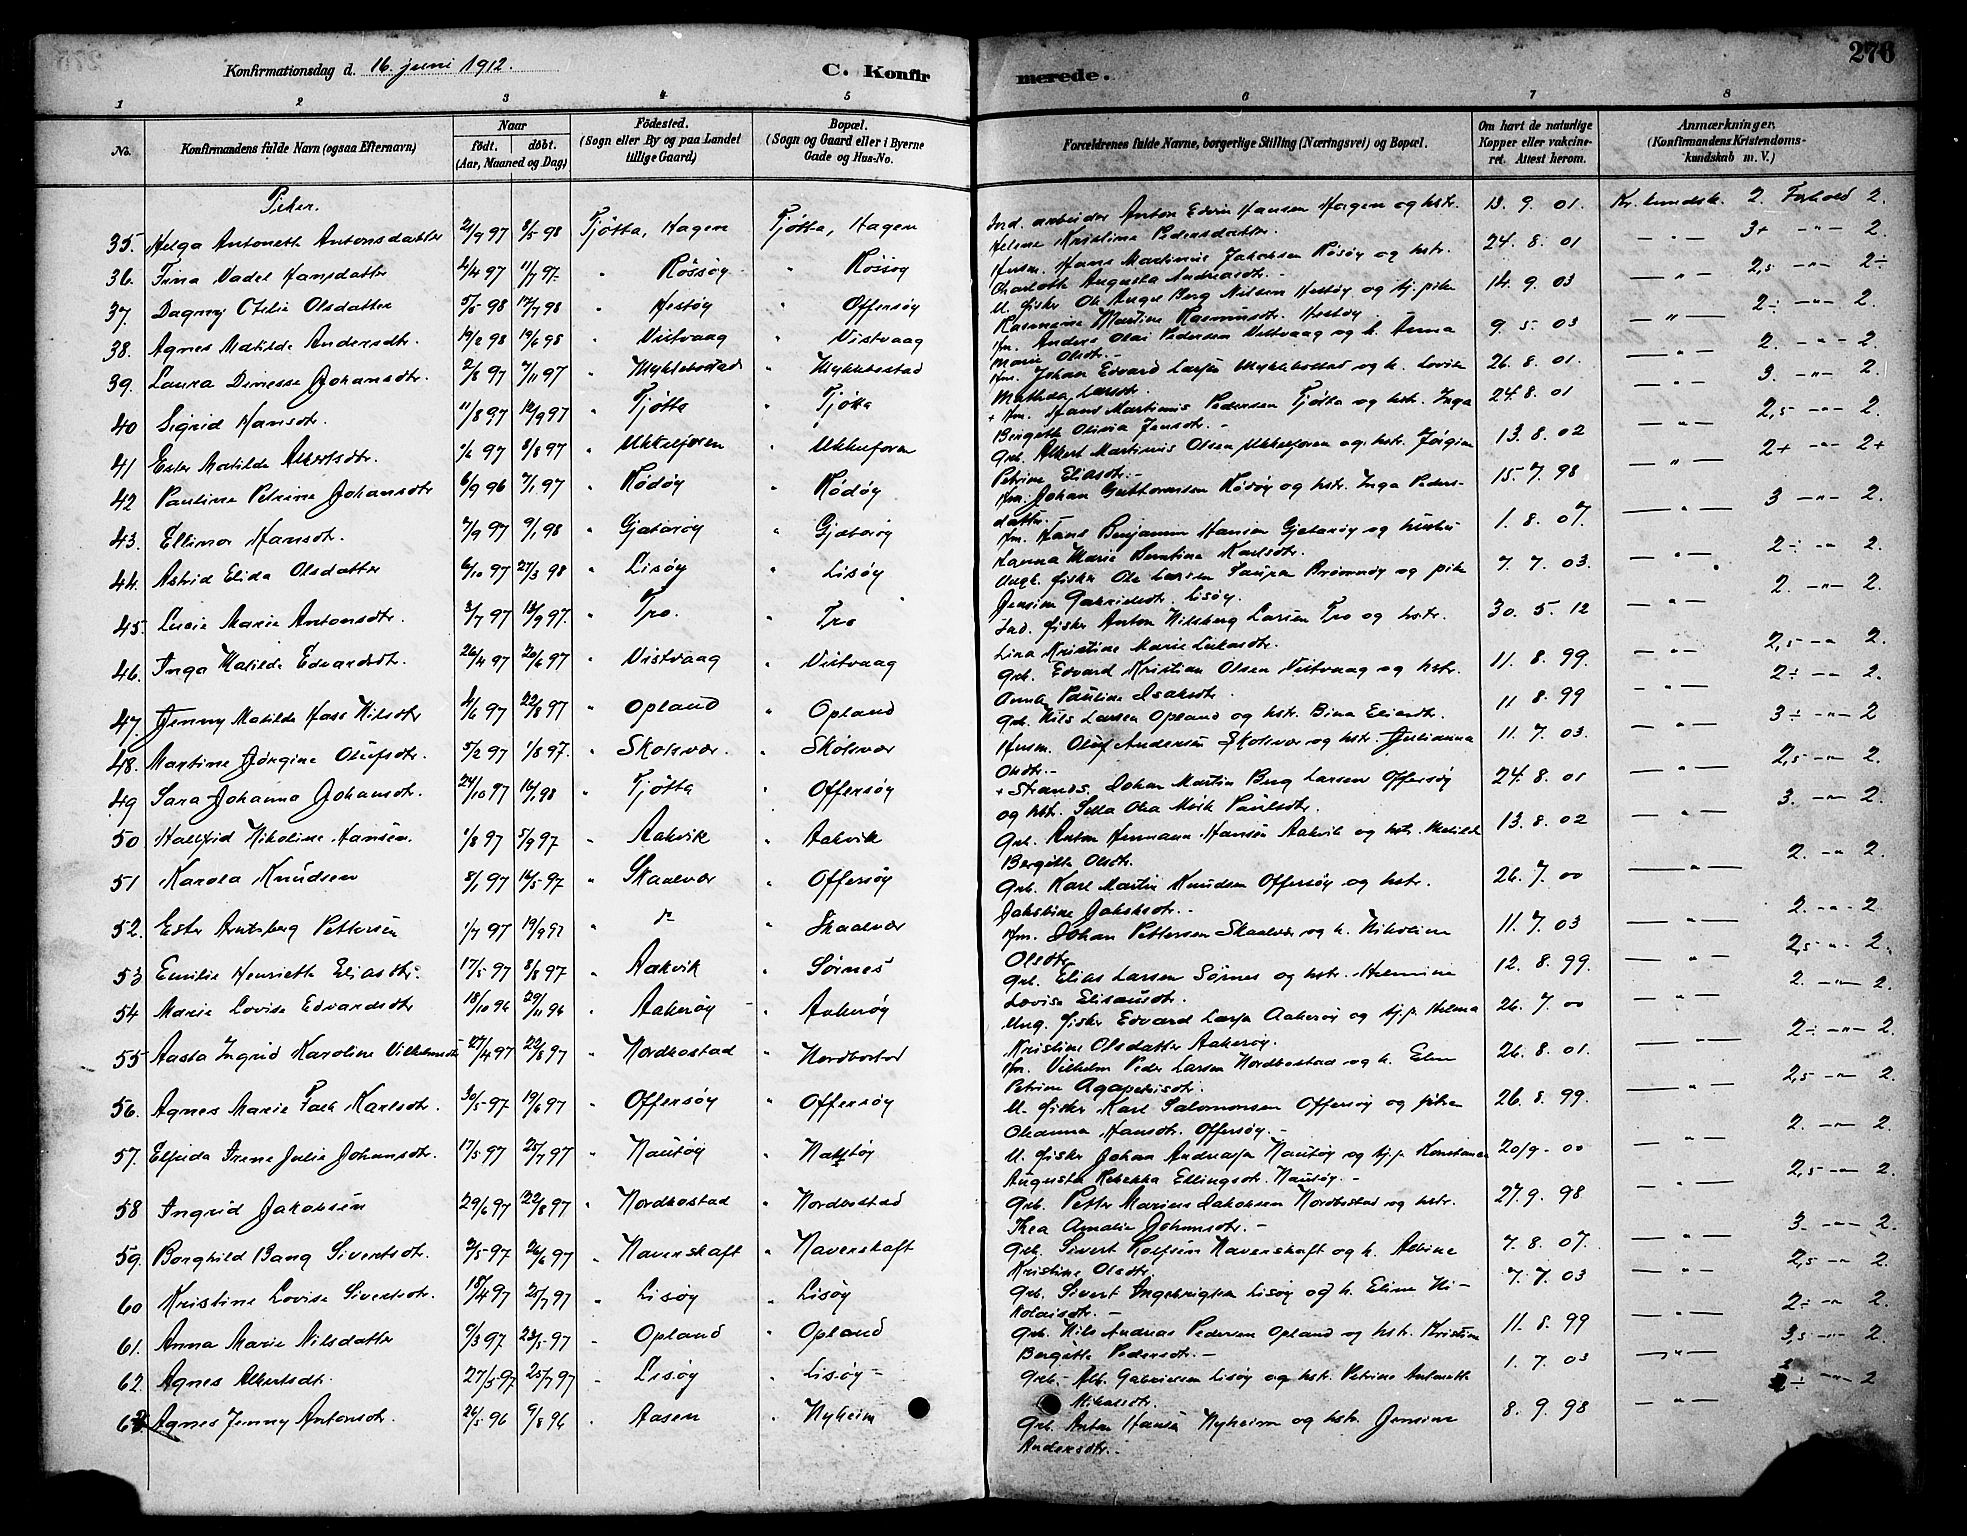 276
Konfirmationsdag d. 16. juni 1912.
C. Konfirmerede.
1 2 3 4 5 6 7 8
No. Konfirmandens fulde Navn (ogsaa Efternavn) Naar födt. döbt. (Aar, Maaned og Dag) Födested. (Sogn eller By og paa Landet tillige Gaard) Bopæl. (Sogn og Gaard eller i Byerne Gade og Hus-No. Forældrenes fulde Navne, borgerlige Stilling (Næringsvei) og Bopæl. Om havt de naturlige Kopper eller vakcineret. Attest herom. Anmærkninger. (Konfirmandens Kristendomskundskab m. V.)
Piker.
35. Helga Antonette Antonsdatter 21/9 97 8/5 98 Tjøtta, Hagen Tjøtta, Hagen Ind. arbeider Anton Edvin Hansen Hagen og hstr. Helene Kristine Pedersdatter. 13. 9. 01. Kr. kundsk. 2. Forhold 2.
36. Trina Vadel Hansdatter 11/7 97. " Rössöy " Rossøy Husm. Hans Martinus Jakobsen Rösöy og hstr. Charlotte Augusta Andreasdtr. 24. 8. 01 — " — 3+ -"- 2.
37. Dagny Otelie Olsdatter 5/5 98 17/7 98 " Hestöy " Offersöy U. fisker Ole Angel Berg Nilsen Hestöy og tj. pike Rasmine Martine Rasmusdtr. Hestöy 14. 9. 03 — " — 2,5 -"- 2÷
38. Agnes Matilde Andersdtr. 19/2 98 19/6 98 " Vistvaag " Vistvaag Fm. Anders Olai Pedersen Vistvaag og h. Anna Marie Olsdtr. 9. 5. 03 — " — 2÷ -"- 2.
39. Laura Denesse Johansdtr. 2/8 97 7/11 97 " Myklebostad " Myklebostad Fm. Johan Edvard Larsen Myklebostad og h. Lovise Mathilda Larsdtr. 26. 8. 01. — " — 2. -"- 2.
40 Sigrid Hansdtr. 11/8 97 12/9 97 " Tjøtta " Tjøtta + Fm. Hans Martinus Pedersen Tjøtta og hstr. Inga Bergitte Olivia Jensdtr. 24. 8. 01 — " — 3. -"- 2.
41 Ester Matilde Albertsdtr. 1/6 97 8/8 97 " Ukkelforen " Ukkelforen Grb. Albert Martinus Olsen Ukkelforen og hstr. Jørgine Petrine Eliasdtr. 13. 8. 02 — " — 2,5 -"- 2.
42 Pauline Petrine Johansdtr 6/9 96 7/1 97 " Rödöy " Rödöy Fm. Johan Guttormsen Rödöy og hstr. Inga Pedersdatter. 15. 7. 98 — " — 2+ -"- 2+
43. Ellinor Hansdtr. 7/9 97 9/1 98 " Gjæteröy " Gjæteröy Fm. Hans Benjamin Hansen Gjeteröy og hustru Hanna Marie Karlsdtr. 1. 8. 07. — " — 3 -"- 2.
44. Astrid Elida Olsdatter 6/10 97 27/3 98 " Lisöy " Lisöy Ungk. fisker Ole Larsen Brönnöy og pike Jensine Gabrielsdtr. Lisöy. 7. 7. 03. — " — 2÷ -"- 2.
45. Lucie Marie Antonsdtr. 3/7 97 12/9 97. " Tro. " Tro Ind. fisker Anton Nilsberg Larsen Tro og hstr. Lina Kristine Marie Lukasdtr. 30. 5. 12 — " — 2. -"- 2.
46. Inga Matilde Edvardsdtr. 26/4 97 20/6 97 " Vistvaag " Vistvaag Grb. Edvard Kristian Olsen Vistvaag og hstr. Pauline Isaksdtr. 11. 8. 99. — " — 2,5 -"- 2.
47. Jenny Matilde Hass Nilsdtr 4/6 97 22/8 97 " Opland " Opland Grb. Nils Larsen Opland og hstr. Bina Eliasdtr. 11. 8. 99 — " — 2÷ -"- 2.
48. Martine Jørgine Olufsdtr. 5/2 97 1/8 97. " Skolsvær. " Skolsvær Husm. Oluf Andersen Skolsvær og hstr Julianna Olsdtr. 11. 7. 03. — " — 3÷ -"- 2
49 Sara Johanna Johansdtr. 24/10 97 16/1 98 " Tjøtta " Offersöy + Strands. Johan Martin Berg Larsen Offersöy og hstr. Paulsdtr. 24. 8. 01 — " — 2,5 -"- 2.
50 Hallfrid Nikoline Hansen. 1/8 97 5/9 97 " Aakvik " Aakvik Grb. Anton Hermann Hansen Aakvik og hstr. Matilde Bergitte Olsdtr. 13. 8. 02 — " — 3. -"- 2.
51 Karola Knudsen 8/1 97 16/5 97 " Skaalvær " Offersöy Grb. Karl Martin Knudsen Offersöy og hstr. Jakobine Jakobsdtr. 26. 7. 00 — " — 2. -"- 2.
52. Ester Arntsberg Pettersen 1/7 97 19/9 97 " do " Skaalvær Fm. Johan Pettersen Skaalvær og h. Nikoline Olsdtr. 11. 7. 03 — " — 2. -"- 2.
53 Emilie Henriette Eliasdtr. 17/5 97 8/8 97 " Aakvik " Sørnes Grb. Elias Larsen Sørnes og hstr. Helmine Lovise Elisausdtr. 12. 8. 99. — " — 2,5 -"- 2.
54 Marie Lovise Edvardsdtr 18/10 96 29/11 96 " Aakeröy " Aakeröy Ung. fisker Edvard Larsen Aakeröy og tj.p. Helena Kristine Olsdatter Aakeröy. 26. 7. 00 — " — 2. -"- 2.
55 Aasta Ingrid Karoline Vilhelmsdtr 27/4 97 22/8 97 " Nordbostad " Nordbostad Fm. Vilhelm Peder Larsen Nordbostad og h. Elen Petrine Agapetusdtr. 26. 8. 01. — " — 2÷ -"- 2.
56. Agnes Marie Falk Karlsdtr. 30/5 97 19/6 97 " Offersöy " Offersöy U. fisker Karl Salomonsen Offersöy og pike Oleanna Hansdtr. Offersöy. 26. 8. 99. — " — 2,5 -"- 2.
57. Elfrida Irene Julie Johansdtr. 17/5 97 25/7 97 " Nautöy " Nautöy U. fisker Johan Andreasen Nautöy og tj.p. Konstanse Augusta Rebekka Ellingsdtr. Nautöy. 20/9. 00 — " — 2. -"- 2.
58 Ingrid Jakobsen 29/6 97 22/8 97 " Nordbostad " Nordbostad Grb. Petter Marius Jakobsen Nordbostad og hstr. Thea Amalie Johansdtr. 27. 9. 98 — " — 2,5 -"- 2.
59. Borghild Bang Sivertsdtr. 2/5 97 26/6 97 " Naverskaft " Naverskaft Grb. Sivert Naverskaft og h. Albine Kristine Olsdtr. 7. 8. 07. — " — 3. -"- 2.
60 Kristine Lovise Sivertsdtr. 18/4 97 25/7 97 " Lisöy " Lisöy Grb. Sivert Ingebrigtsen Lisöy og h. Eline Nikolaisdtr. 7. 7. 03 — " — 2,5 -"- 2.
61. Anna Marie Nilsdatter 9/3 97. 23/5 97 " Opland " Opland Grb. Nils Andreas Pedersen Opland og hstr. Kristine Bergitte Pedersdtr. 11. 8. 99 — " — 2÷ -"- 2.
62. Agnes Albertsdtr. 27/5 97 25/7 97 " Lisöy " Lisöy Grb. Alb. Gabrielsen Lisöy og hstr. Petrine Antonette Nikolaisdtr. 1. 7. 03 — " — 3,5 -"- 2.
63. Agnes Jenny Antonsdtr. 26/5 96 9/8 96 " Aasen " Nyheim Grb. Anton Hansen Nyheim og hstr. Jensine Andersdtr. 8. 9. 98 — " — 2÷ -"- 2